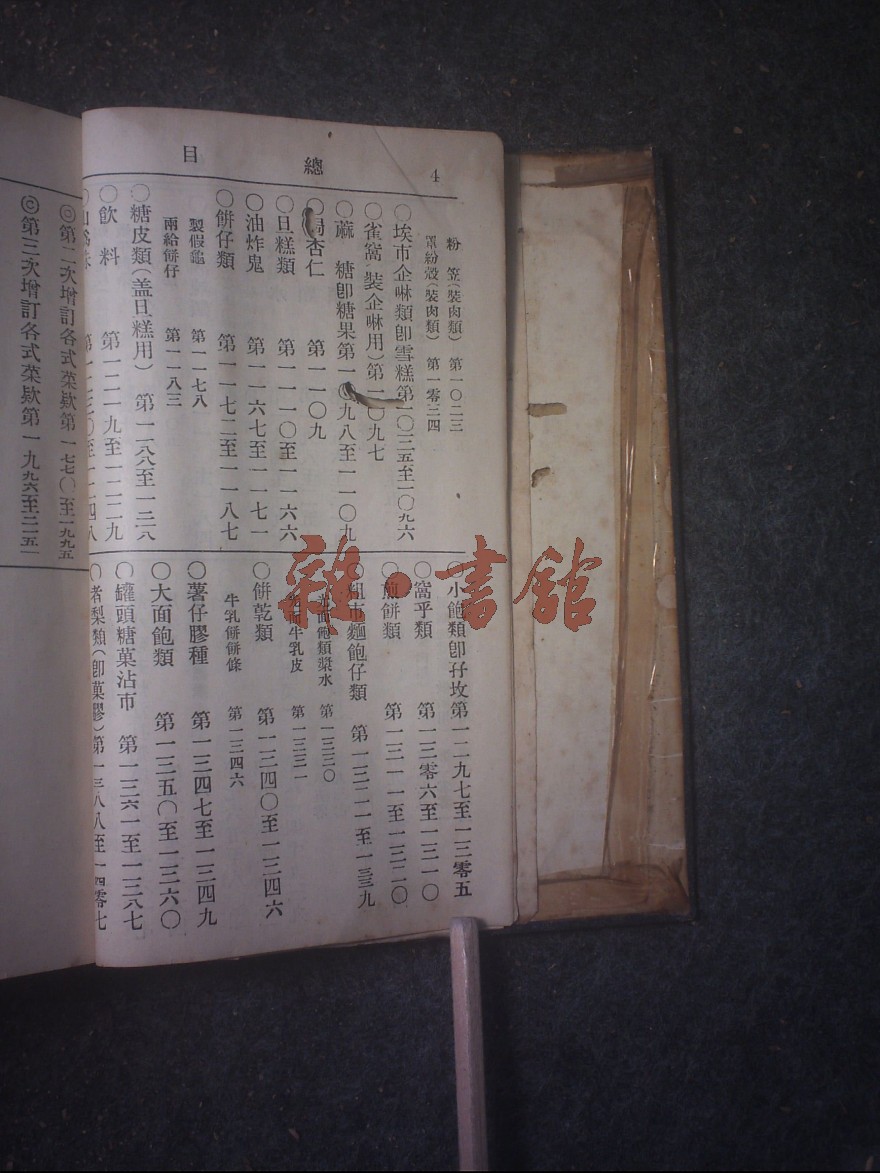 總目
4
粉笠(裝肉類) 第一〇二三
罩紛殼(裝肉類) 第一零三四
〇埃市企啉類卽雪糕第一〇三五至一〇九六
〇雀窩(裝企啉用)第一〇九七
〇蔴糖卽糖果第一〇九八至一一〇九
杏仁 第一一〇九
〇旦糕類 第一一一〇至一一六六
〇油炸鬼 第一一六七至一一七一
〇餅仔類 第一一七二至一一八七
製假龜 第一一七八
兩給餅仔 第一一八三
〇糖皮類(盖旦糕用) 第一一八八至一二一八
〇飲料 第一二一九至一二二九
〇小飽類卽孖坆第一二九七至一三零五
〇窩乎類 第一三零六至一三一〇
〇煎餅類 第一三一一至一三二〇
〇粗市麵飽仔類 第一三二一至一三三九
麵飽類漿水 第一三三〇
牛乳皮 第一三三一
〇餅乾類 第一三四〇至一三四六
牛乳餅餅條 第一三四六
〇薯仔膠種 第一三四七至一三四九
〇大面飽類 第一三五〇至一三六〇
〇罐頭糖菓沾市 第一三六一至一三八七
〇者梨類(卽菓膠)第一三八八至一四零七
◎第二次增訂各式菜欵第一七七〇至一九九五
◎第三次增訂各式菜欵第一九九六至二一五一
雜·書館